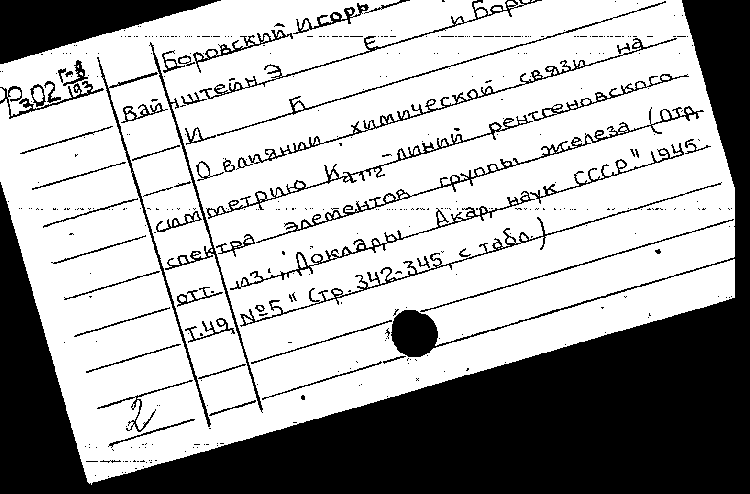 Боровский, Игорь
302 Г-8/193
Вайнштейн, Э Е и Боро
И Б
О влиянии химической связи на
симметрию Kα1α2-линий рентгеновского
спектра элементов группы железа (отд.
отт. из: „Доклады Акад. наук СССР." 1945.
т.49, №5" Стр. 342-345, с табл.)
2